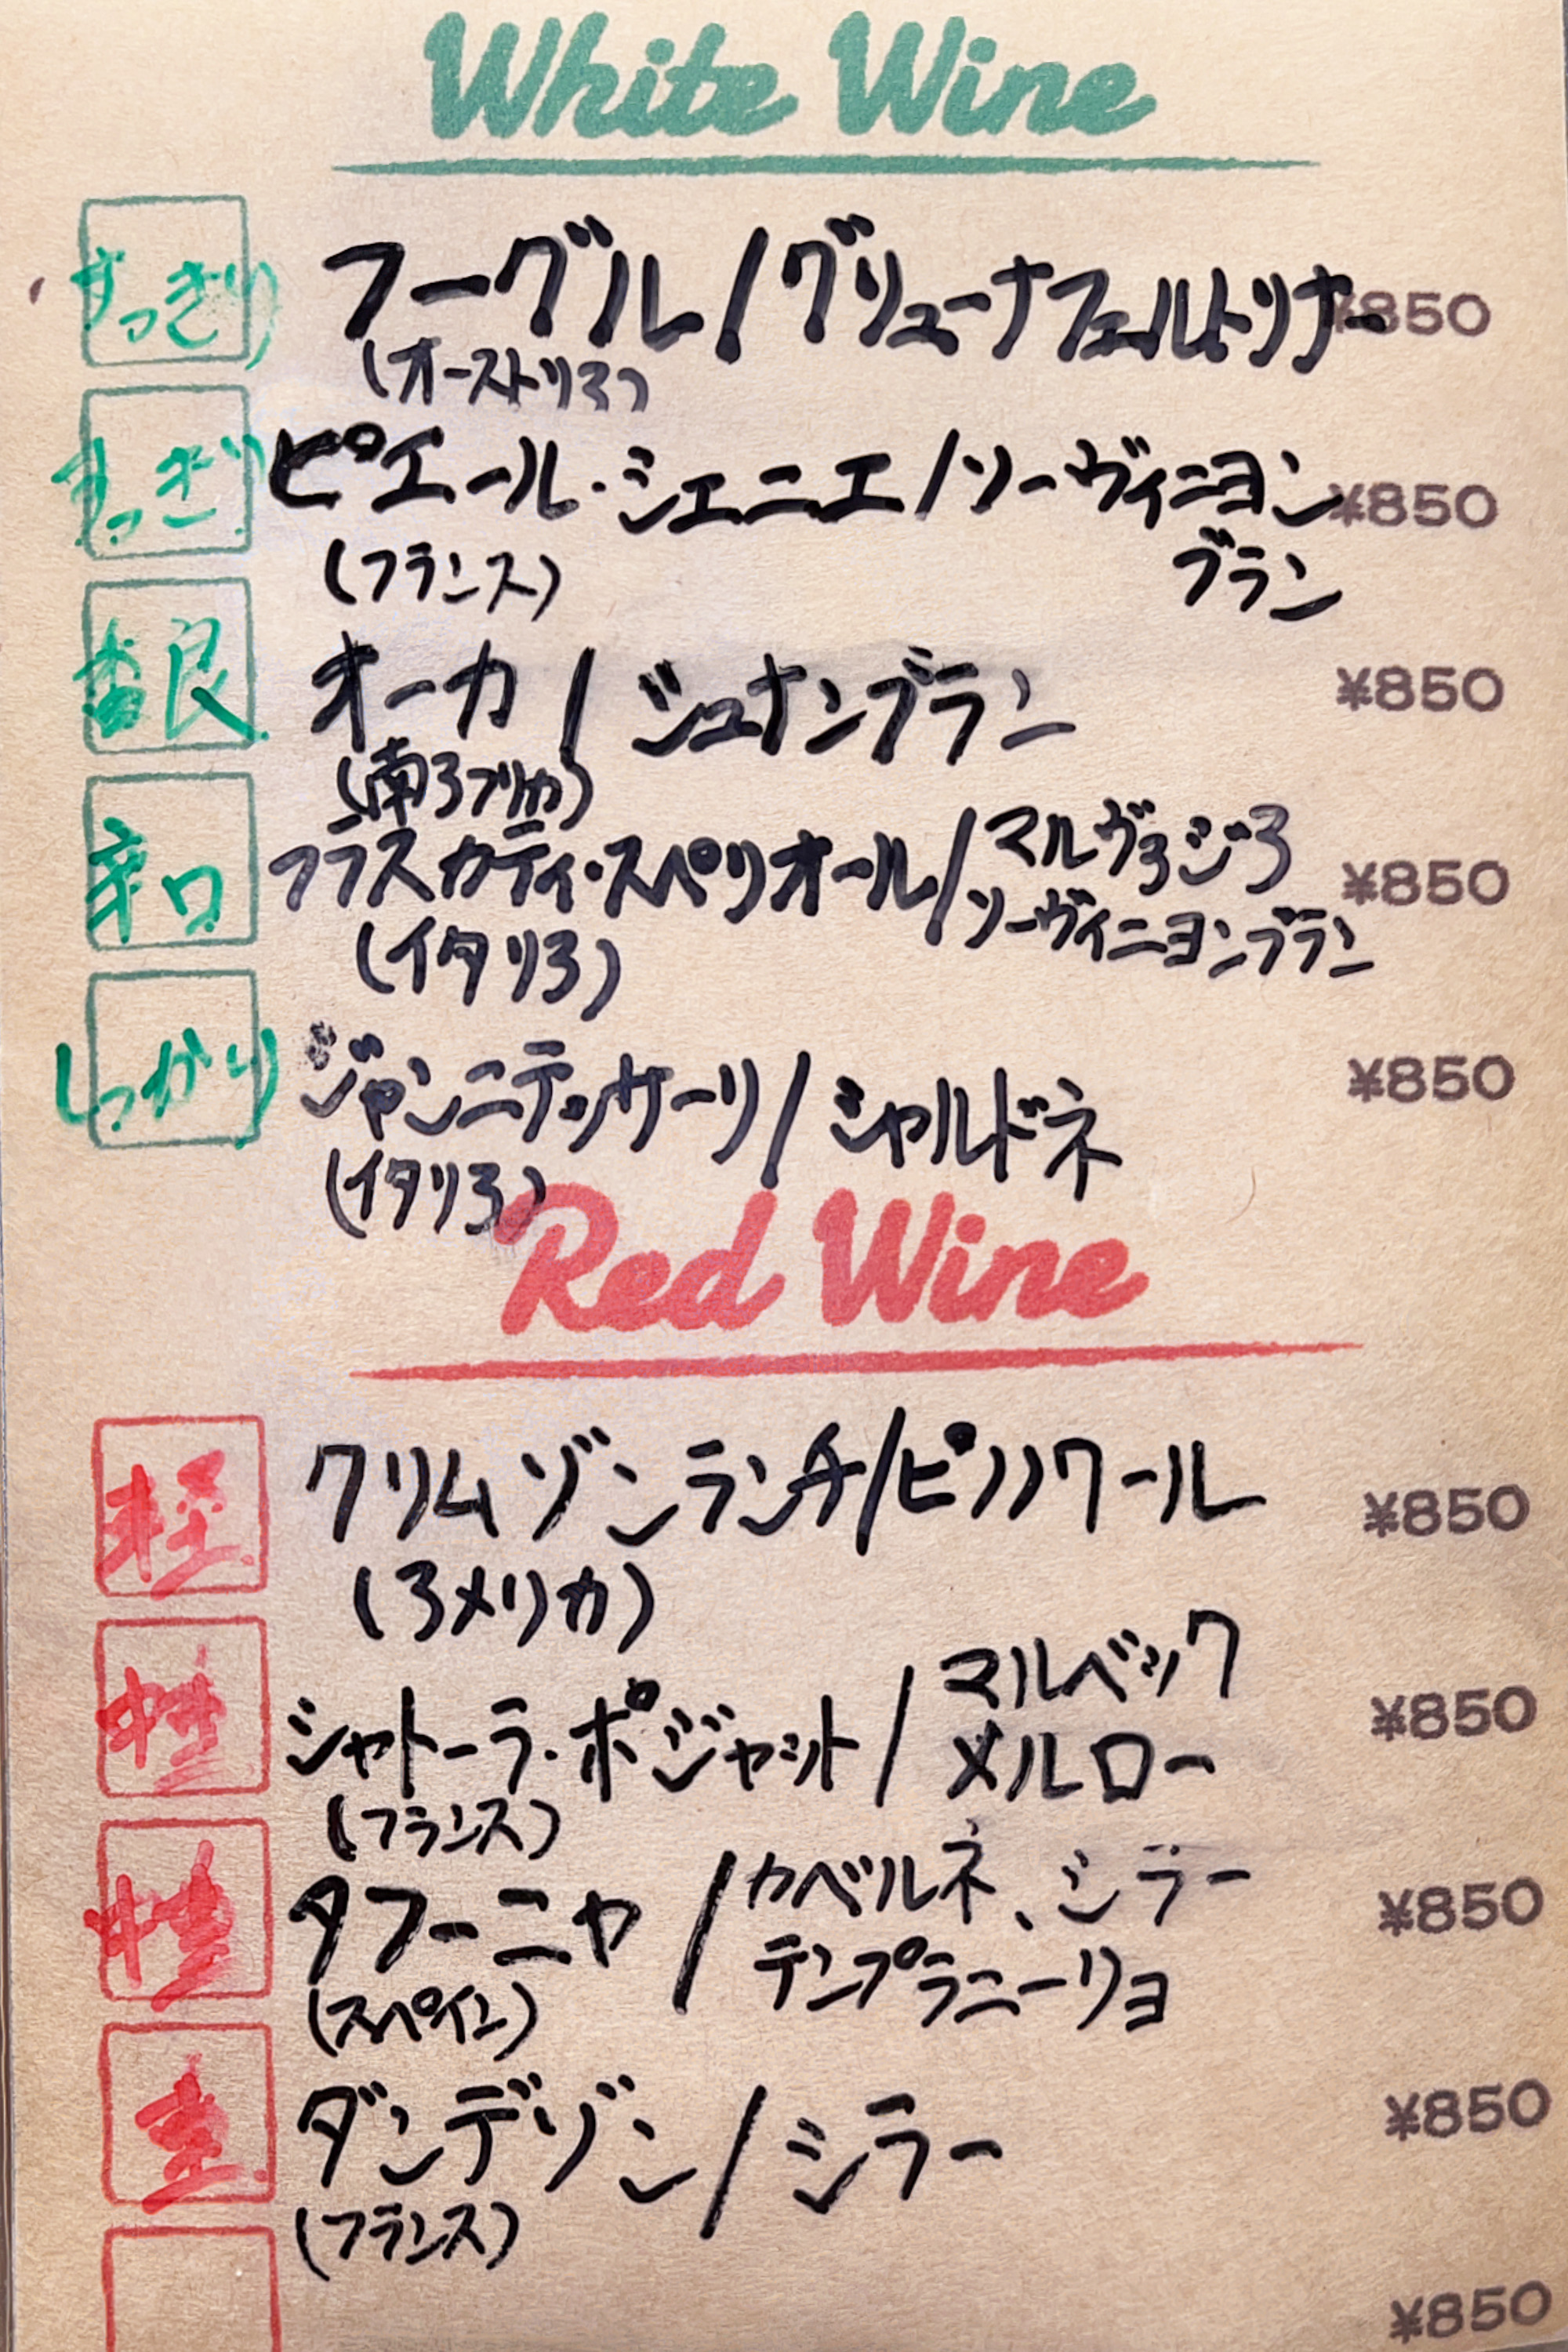 White Wine
すっきり フーグル/グリューナフェルトリナー ¥850
(オーストリア)
すっきり ピエール・シェニエ/ソーヴィニヨン ¥850
(フランス) ブラン
オーカ/シュナンブラン ¥850
(南アフリカ)
辛口 フラスカティ・スペリオール/マルヴァジア ¥850
ソーヴィニヨンブラン
(イタリア)
しっかり ジャンニテッサーリ/シャルドネ ¥850
(イタリア)
Red Wine
軽 クリムゾンランチ/ピノノワール ¥850
(アメリカ)
シャトーラ・ポジャット/マルベック ¥850
メルロー
(フランス)
タフーニャ/カベルネ、シラー ¥850
テンプラニーリョ
(スペイン)
重 ダンデゾン/シラー ¥850
(フランス)
¥850